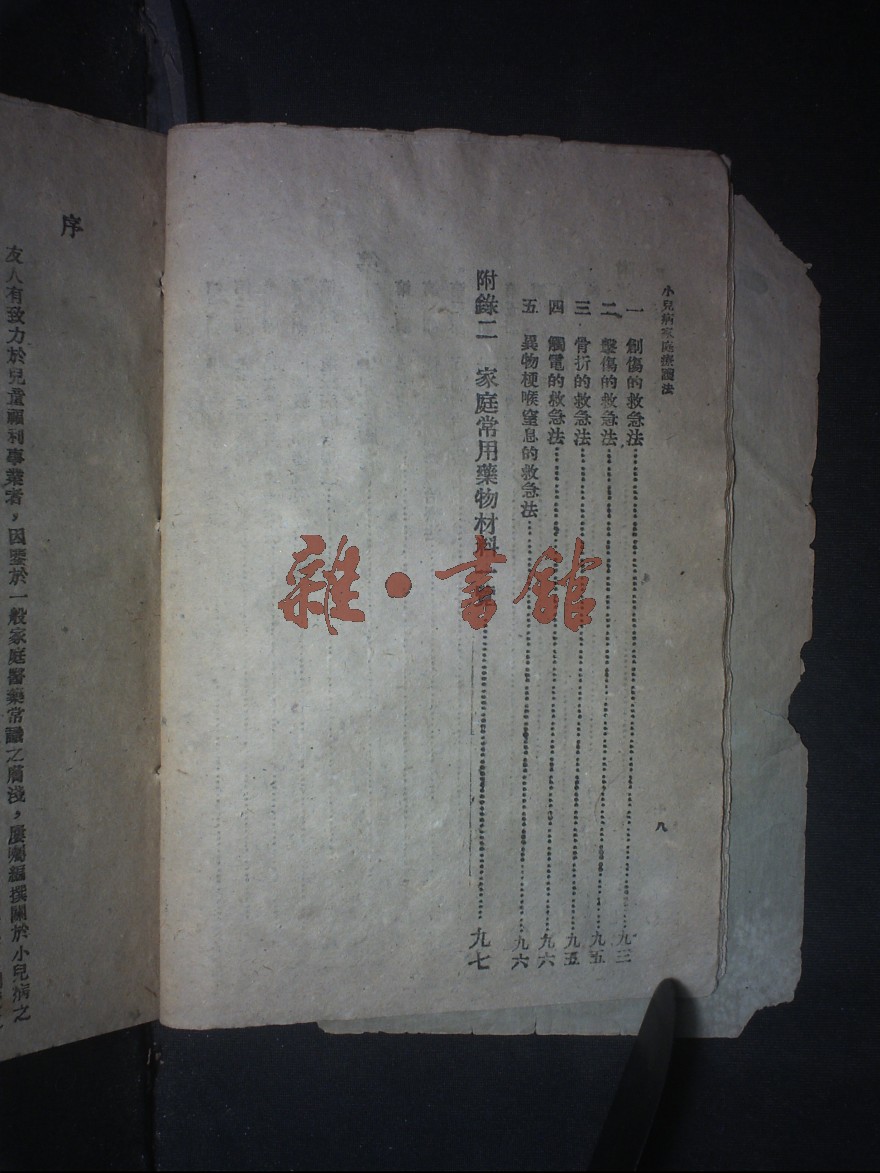 小兒病家庭療護法
一 創傷的救急法 九三
二 擊傷的救急法 九五
三 骨折的救急法 九五
四 觸電的救急法 九六
五 異物梗喉窒息的救急法 九六
附錄二 家庭常用藥物材料一覽 九七
八
雜·書館
序
友人有致力於兒童福利事業者,因鑒於一般家庭醫藥常識之膚淺,屢囑編撰關於小兒病之